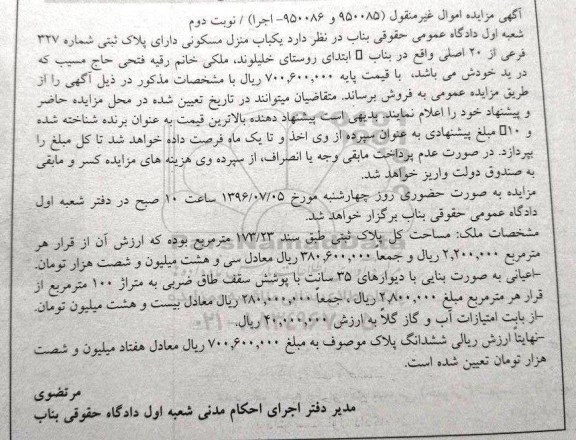 آگهی مزایده اموال غیرمنقول (۹۵۰۰۸۵ و ۹۵۰۰۸۶- اجرا) / نوبت دوم
شعبه اول دادگاه عمومی حقوقی بناب در نظر دارد یکباب منزل مسکونی دارای پلاک ثبتی شماره ۳۲۷
فرعی از ۲۰ اصلی واقع در بناب 􀀀 ابتدای روستای خلیلوند، ملکی خانم رقیه فتحی حاج مسیب که
در ید خودش می باشد، با قیمت پایه ۷۰۰,۶۰۰,۰۰۰ ریال با مشخصات مذکور در ذیل آگهی را از
طریق مزایده عمومی به فروش برساند. متقاضیان میتوانند در تاریخ تعیین شده در محل مزایده حاضر
و پیشنهاد خود را اعلام نمایند. بدیهی است پیشنهاد دهنده بالاترین قیمت به عنوان برنده شناخته شده
و ۱۰􀀀 مبلغ پیشنهادی به عنوان سپرده از وی اخذ و تا یک ماه فرصت داده خواهد شد تا کل مبلغ را
بپردازد. در صورت عدم پرداخت مابقی وجه یا انصراف، از سپرده وی هزینه های مزایده کسر و مابقی
به صندوق دولت واریز خواهد شد.
مزایده به صورت حضوری روز چهارشنبه مورخ ۱۳۹۶/۰۷/۰۵ ساعت ۱۰ صبح در دفتر شعبه اول
دادگاه عمومی حقوقی بناب برگزار خواهد شد.
مشخصات ملک: مساحت کل پلاک ثبتی طبق سند ۱۷۳/۲۳ مترمربع بوده که ارزش آن از قرار هر
مترمربع ۲,۲۰۰,۰۰۰ ریال و جمعاً ۳۸۰,۶۰۰,۰۰۰ ریال معادل سی و هشت میلیون و شصت هزار تومان.
-اعیانی به صورت بنایی با دیوارهای ۳۵ سانت با پوشش سقف طاق ضربی به متراژ ۱۰۰ مترمربع از
قرار هر مترمربع مبلغ ۲,۸۰۰,۰۰۰ ریال، جمعاً ۲۸۰,۰۰۰,۰۰۰ ریال معادل بیست و هشت میلیون تومان.
-از بابت امتیازات آب و گاز کلاً به ارزش ۴۰,۰۰۰,۰۰۰ ریال.
-نهایتاً ارزش ریالی ششدانگ پلاک موصوف به مبلغ ۷۰۰,۶۰۰,۰۰۰ ریال معادل هفتاد میلیون و شصت
هزار تومان تعیین شده است.
مرتضوی
مدیر دفتر اجرای احکام مدنی شعبه اول دادگاه حقوقی بناب